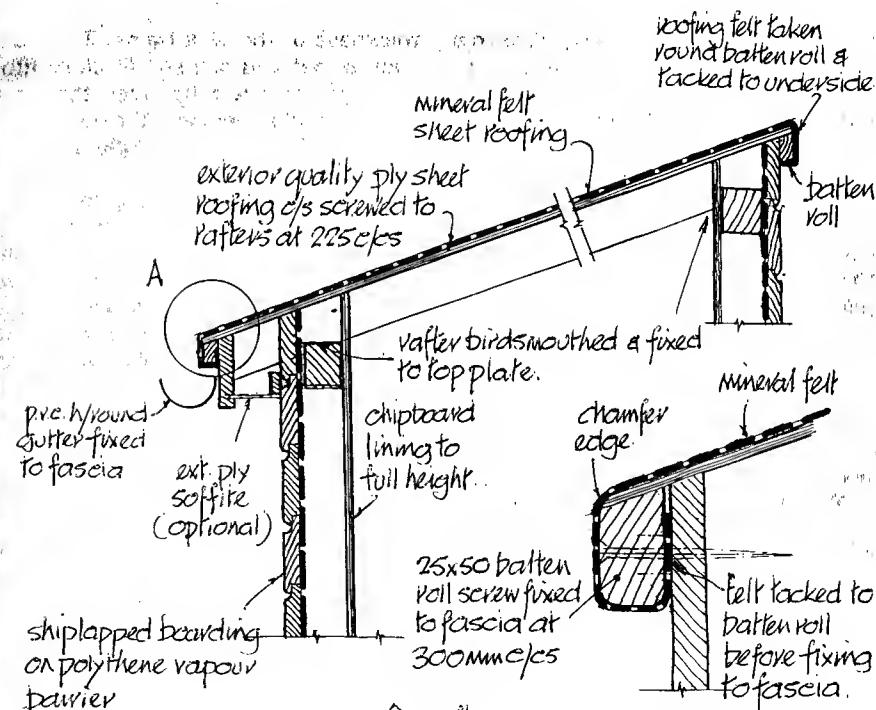 roofing felt taken
round batten roll &
tacked to underside
mineral felt
sheet roofing
exterior quality ply sheet
roofing c/s screwed to
rafters at 225 c/cs
batten
roll
A
rafter birdsmouthed & fixed
to top plate.
mineral felt
p.v.c. h/round
gutter fixed
to fascia
ext. ply
soffite
(optional)
chipboard
lining to
full height.
chamfer
edge
25x50 batten
roll screw fixed
to fascia at
300mm c/cs
felt tacked to
batten roll
before fixing
to fascia.
shiplapped boarding
on polythene vapour
barrier